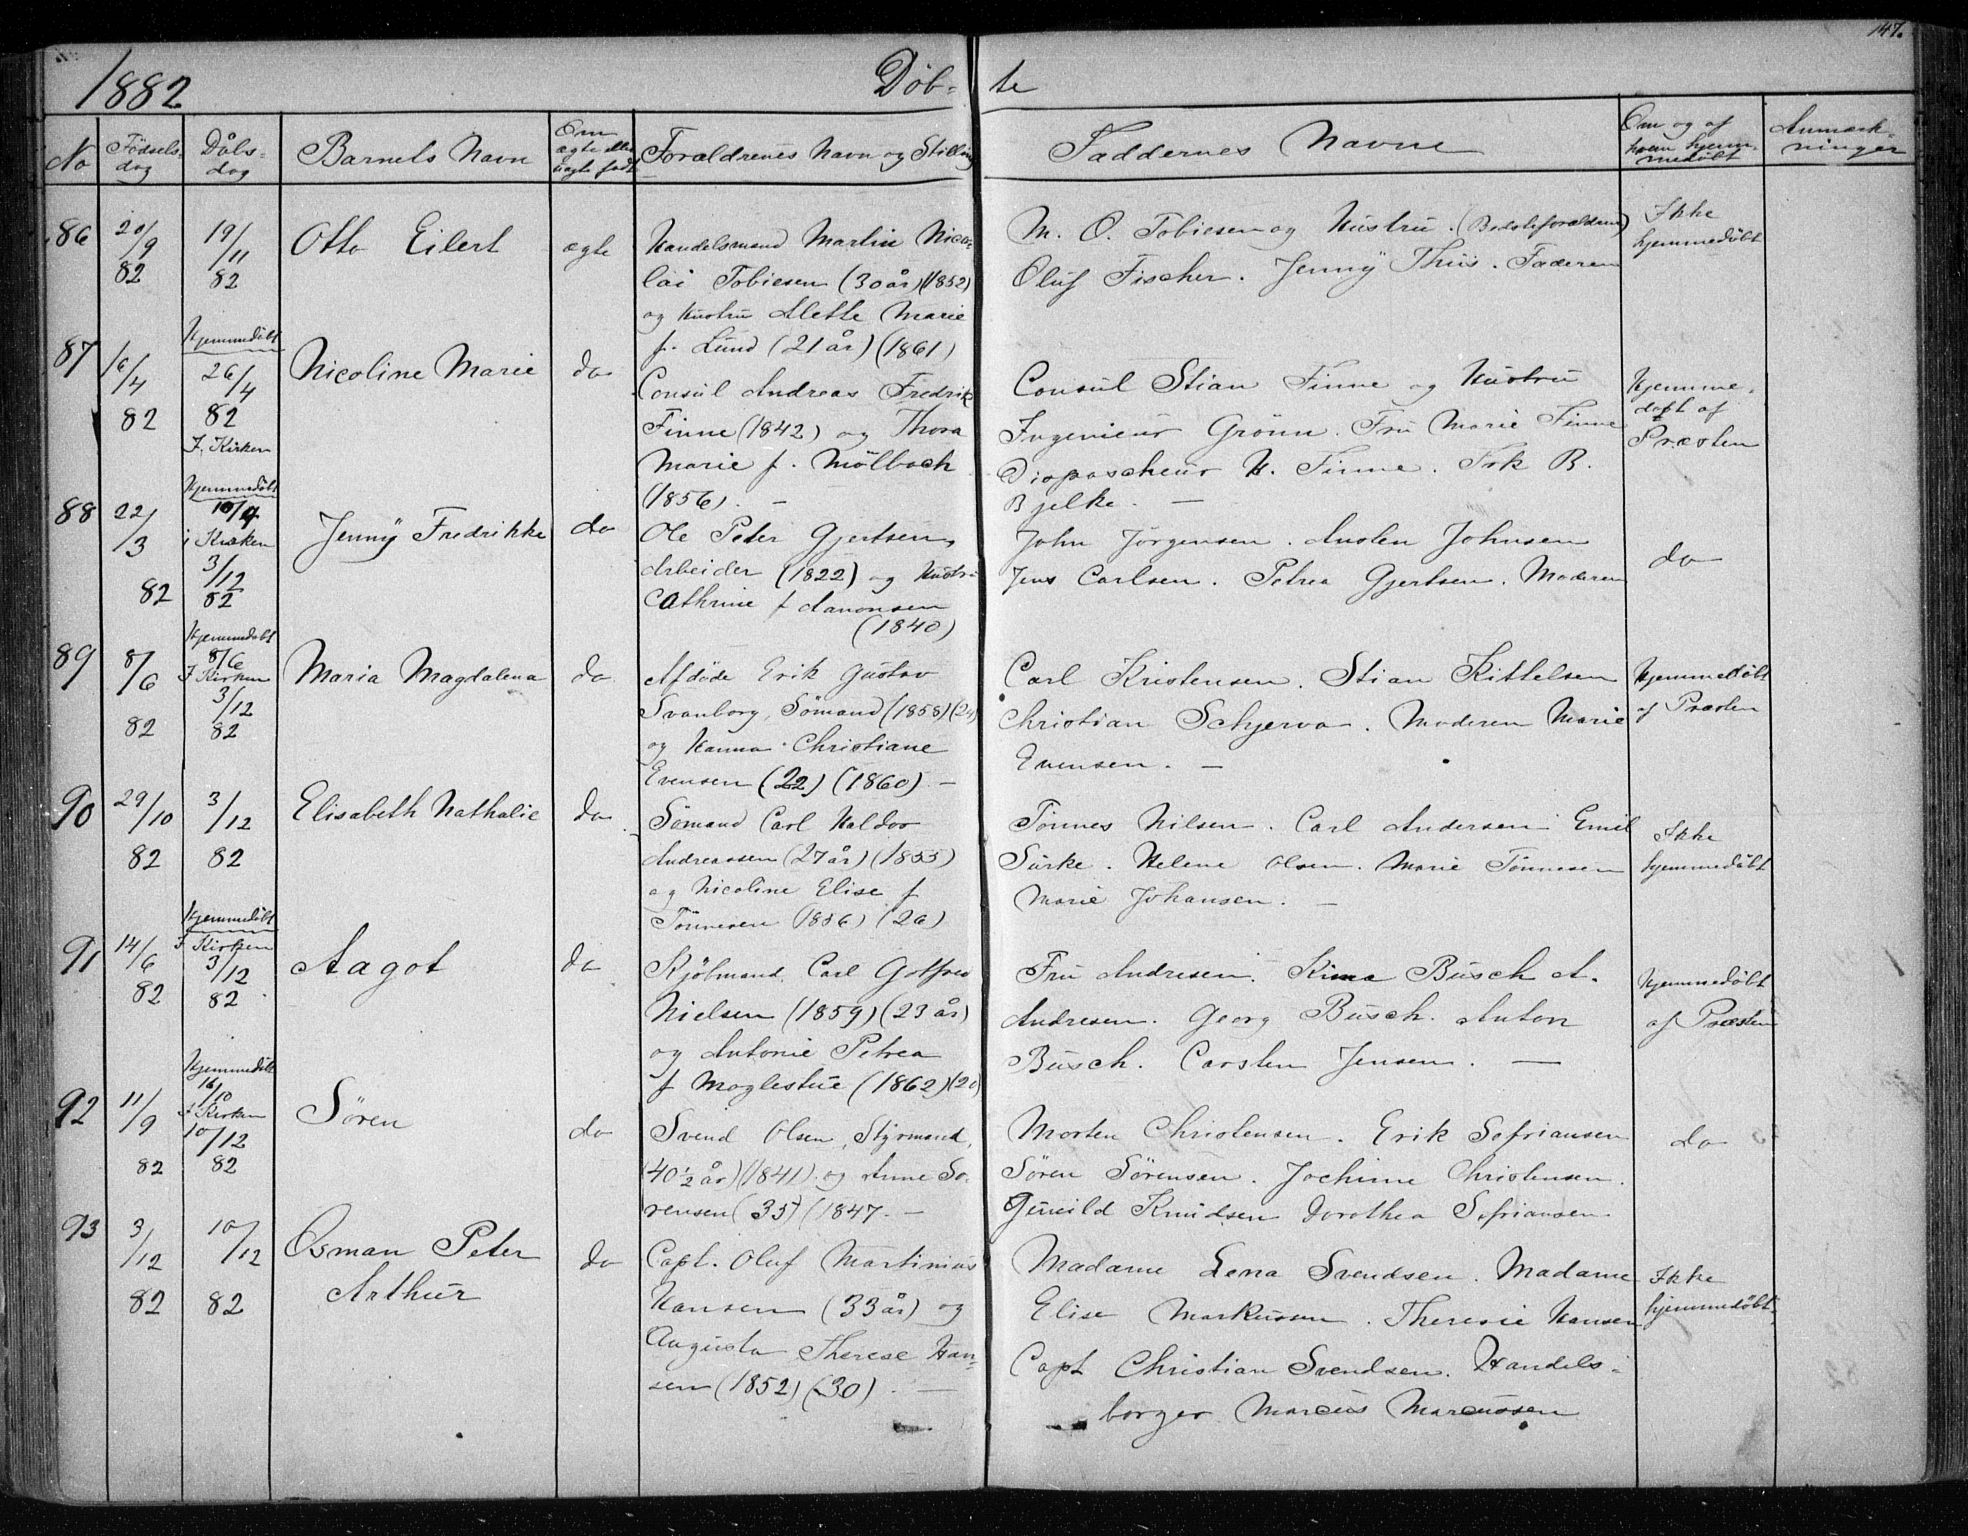 147.
1882 Døb- te
No
Fødsels-
dag
Dåbs-
dag
Barnets Navn
Om
ægte eller
uægte født
Forældrenes Navn og Stilling
Faddernes Navne
Om og af
hvem hjem-
medøbt
Anmærk-
ninger
86
20/9
82
19/11
82
Otto Eilert
ægte
Handelsmand Martin Nico-
lai Tobiesen (30 år) (1852)
og Hustru Mette Marie
f. Lund (21 år) (1861)
M. O. Tobiesen og Hustru. (Bedsteforældrene)
Oluf Fischer. Jenny Thiis. Faderen
Ikke
hjemmedøbt
87
16/4
82
Hjemmedøbt
26/4
82
I. Kirken
Nicoline Marie
do
Consul Andreas Fredrik
Finne (1842) og Thora
Marie f. Mølbach
(1856). —
Consul Stian Finne og Hustru
Ingeniør Grönn. Fru Marie Finne
Dispascheur H. Finne. Frk B.
Bjelke. —
Hjemme-
døbt af
Præsten
88
22/3
82
Hjemmedøbt
i Kirken
3/12
82
Jenny Fredrikke
do
Ole Peter Gjertsen,
Arbeider (1822) og Hustru
Cathrine f Aanonsen
(1840)
John Jørgensen. Austen Johnsen
Jens Carlsen. Petrea Gjertsen. Moderen
do
89
8/6
82
Hjemmedøbt
8/6
I Kirken
3/12
82
Maria Magdalena
do
Afdøde Erik Gustav
Svanborg, Sømand (1858) (24)
og Hanna Christiane
Evensen (22) (1860) —
Carl Kristensen. Stian Kittelsen
Christian Schjerva. Moderen Marie
Evensen. —
Hjemmedøbt
af Præsten
90
29/10
82
3/12
82
Elisabeth Nathalie
do
Sømand Carl Haldor
Andreassen (27 år) (1855)
og Nicoline Elise f
Tönnesen (1856) (26)
Tönnes Nilsen. Carl Andersen Emil
Sürke. Helene Olsen. Marie Tönnesen
Marie Johansen. —
Ikke
hjemmedøbt
91
14/6
82
Hjemmedøbt
I Kirken
3/12
82
Aagot
do
Kjøbmand Carl Gotfred
Nielsen (1859) (23 år)
og Antonie Petrea
f Moglestue (1862) (20)
Fru Andresen. Kima Busch A.
Andresen. Georg Busch. Anton
Busch. Carsten Jensen. —
Hjemmedøbt
af Præsten
92
11/9
82
Hjemmedøbt
16/10
I Kirken
10/12
82
Søren
do
Svend Olsen, Styrmand,
(40 1/2 år) (1841) og Anne Sø-
rensen (35) (1847. —
Morten Christensen. Erik Sefriansen
Søren Sørensen. Jochime Christensen.
Gunild Knudsen Dorothea Sefriansen.
do
93
3/12
82
10/12
82
Osman Peter
Arthur
do
Capt. Oluf Martinius
Hansen (33 år) og
Augusta Therese Han-
sen (1852) (30). —
Madame Lena Svendsen. Madame
Elise Markussen. Theresie Hansen
Capt Christian Svendsen. Handels-
borger Marcus Marcussen
Ikke
hjemmedøbt.